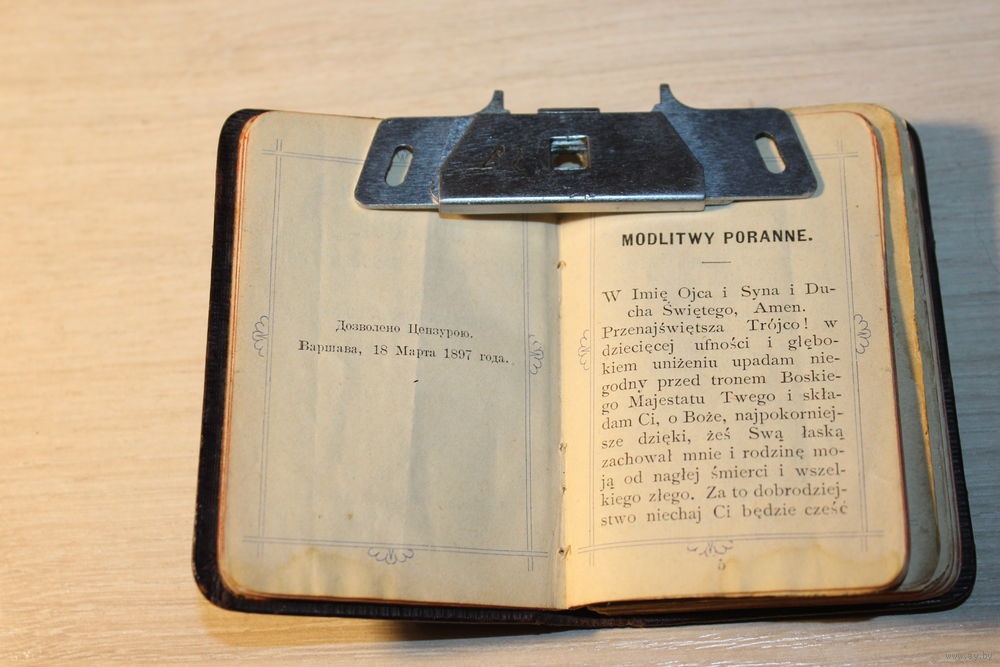 Дозволено Цензурою.
Варшава, 18 Марта 1897 года.
MODLITWY PORANNE.
W Imię Ojca i Syna i Du-
cha Świętego, Amen.
Przenajświętsza Trójco! w
dziecięcej ufności i głębo-
kiem uniżeniu upadam nie-
godny przed tronem Boskie-
go Majestatu Twego i skła-
dam Ci, o Boże, najpokorniej-
sze dzięki, żeś Swą łaską
zachował mnie i rodzinę mo-
ją od nagłej śmierci i wszel-
kiego złego. Za to dobrodziej-
stwo niechaj Ci będzie cześć
5
www.ay.by